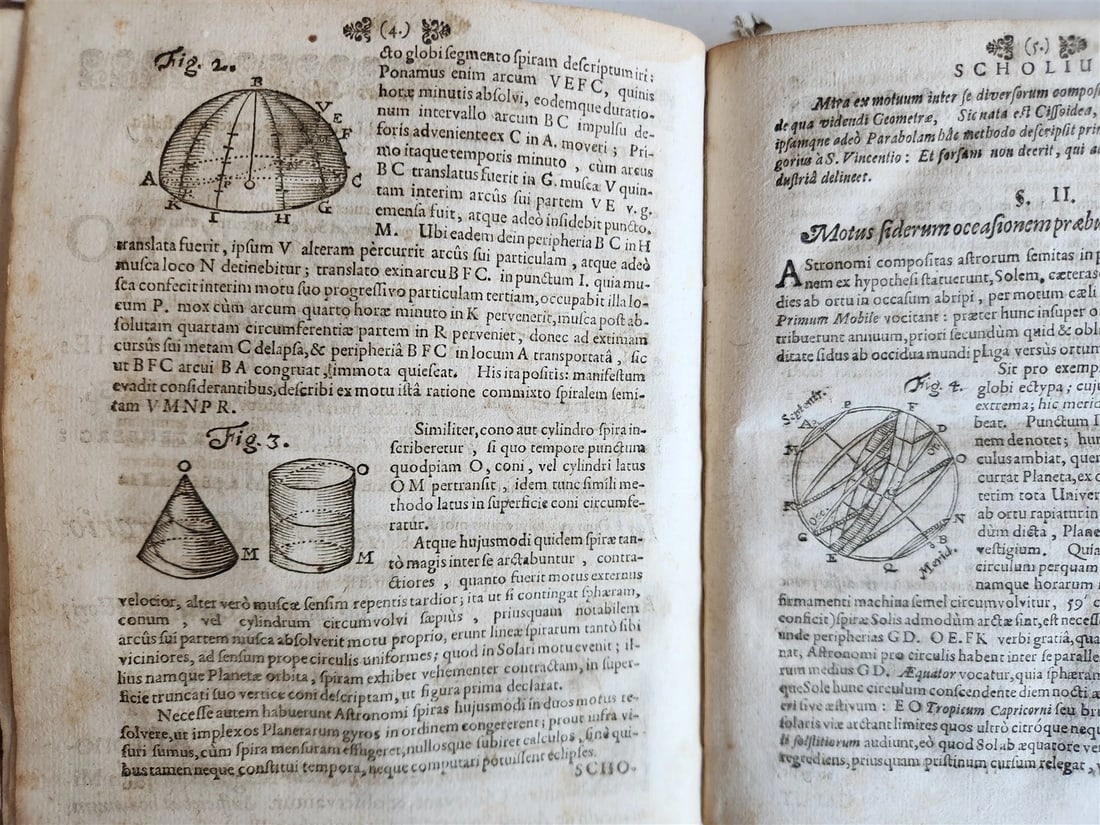 (4.)
Fig. 2.
B
V
E
F
A
C
P
K
I
H
G
cto globi segmento spiram descriptum iri:
Ponamus enim arcum VEFC, quinis
horæ minutis absolvi, eodemque duratio-
num intervallo arcum BC impulsu de-
foris adveniente ex C in A. moveri; Pri-
mo itaque temporis minuto, cùm arcus
BC translatus fuerit in G. musca V quin-
tam interim arcûs sui partem VE v. g.
emensa fuit, atque adeò insidebit puncto,
M. Ubi eadem dein peripheria BC in H
translata fuerit, ipsum V alteram percurrit arcûs sui particulam, atque adeò
musca loco N detinebitur; translato exin arcu BFC. in punctum I. quia mu-
sca confecit interim motu suo progressivo particulam tertiam, occupabit illa lo-
cum P. mox cùm arcum quarto horæ minuto in K pervenerit, musca post ab-
solutam quartam circumferentiæ partem in R perveniet, donec ad extimam
cursûs sui metam C delapsa, & peripheriâ BFC in locum A transportatâ, sic
ut BFC arcui BA congruat, immota quiescat. His ita positis: manifestum
evadit considerantibus, describi ex motu istâ ratione commixto spiralem semi-
tam VMNPR.
Fig. 3.
O
O
M
M
Similiter, cono aut cylindro spira in-
scriberetur, si quo tempore punctum
quodpiam O, coni, vel cylindri latus
OM pertransit, idem tunc simili me-
thodo latus in superficie coni circumfe-
ratur.
Atque hujusmodi quidem spiræ tan-
tò magis inter se arctabuntur, contra-
ctiores, quanto fuerit motus externus
velocior, alter verò muscæ sensim repentis tardior; ita ut si contingat sphæram,
conum, vel cylindrum circumvolvi sæpius, priusquam notabilem
arcûs sui partem musca absolverit motu proprio, erunt lineæ spirarum tantò sibi
viciniores, ad sensum prope circulis uniformes; quod in Solari motu evenit; il-
lius namque Planetæ orbita, spiram exhibet vehementer contractam, in super-
ficie truncati suo vertice coni descriptam, ut figura prima declarat.
Necesse autem habuerunt Astronomi spiras hujusmodi in duos motus re-
solvere, ut implexos Planetarum gyros in ordinem congererent; prout infra vi-
suri sumus, cùm spira mensuram effugeret, nullosque subiret calculos, sine qui-
bus tamen neque constitui tempora, neque computari potuissent eclipses.
SCHO-
(5.)
SCHOLIU
Mira ex motuum inter se diversorum composi
de qua videndi Geometræ, Sic nata est Cissoidea,
ipsamque adeò Parabolam hâc methodo descripsit prim
gorius à S. Vincentio: Et forsan non deerit, qui ad
dustriâ delineet.
§. II.
Motus siderum occasionem præbu
AStronomi compositas astrorum semitas in p
nem ex hypothesi statuerunt, Solem, cæteras
dies ab ortu in occasum abripi, per motum cæli
Primum Mobile vocitant: præter hunc insuper
tribuerunt annuum, priori secundùm quid & obl
ditate sidus ab occidua mundi plaga versùs ortum
Fig. 4.
Septentr.
P
F
D
O
N
B
Q
E
G
Merid.
Sit pro exemp
globi ectypa; cuj
extrema; hic meri
beat. Punctum I
nem denotet; hu
culus ambiat, que
currat Planeta, ex
terim tota Univer
ab ortu rapiatur in
dùm dicta, Plane
vestigium. Quia
circulum perquam
namque horarum
firmamenti machina semel circumvolvitur, 59′
conficit) spiræ Solis admodùm arctæ sint, est necesse
unde peripherias GD. OE. FK verbi gratiâ, qua
nat, Astronomi pro circulis habent inter se paralle
rum medius GD. Æquator vocatur, quia sphæram
que Sole hunc circulum conscendente diem nocti æ
eri sive æstivum: EO Tropicum Capricorni seu br
solaris viæ arctant limites quos ultrò citróque neq
li solstitiorum audiunt, eò quod Sol ab æquatore ve
regrediens, priusquam pristinum cursum relegat,